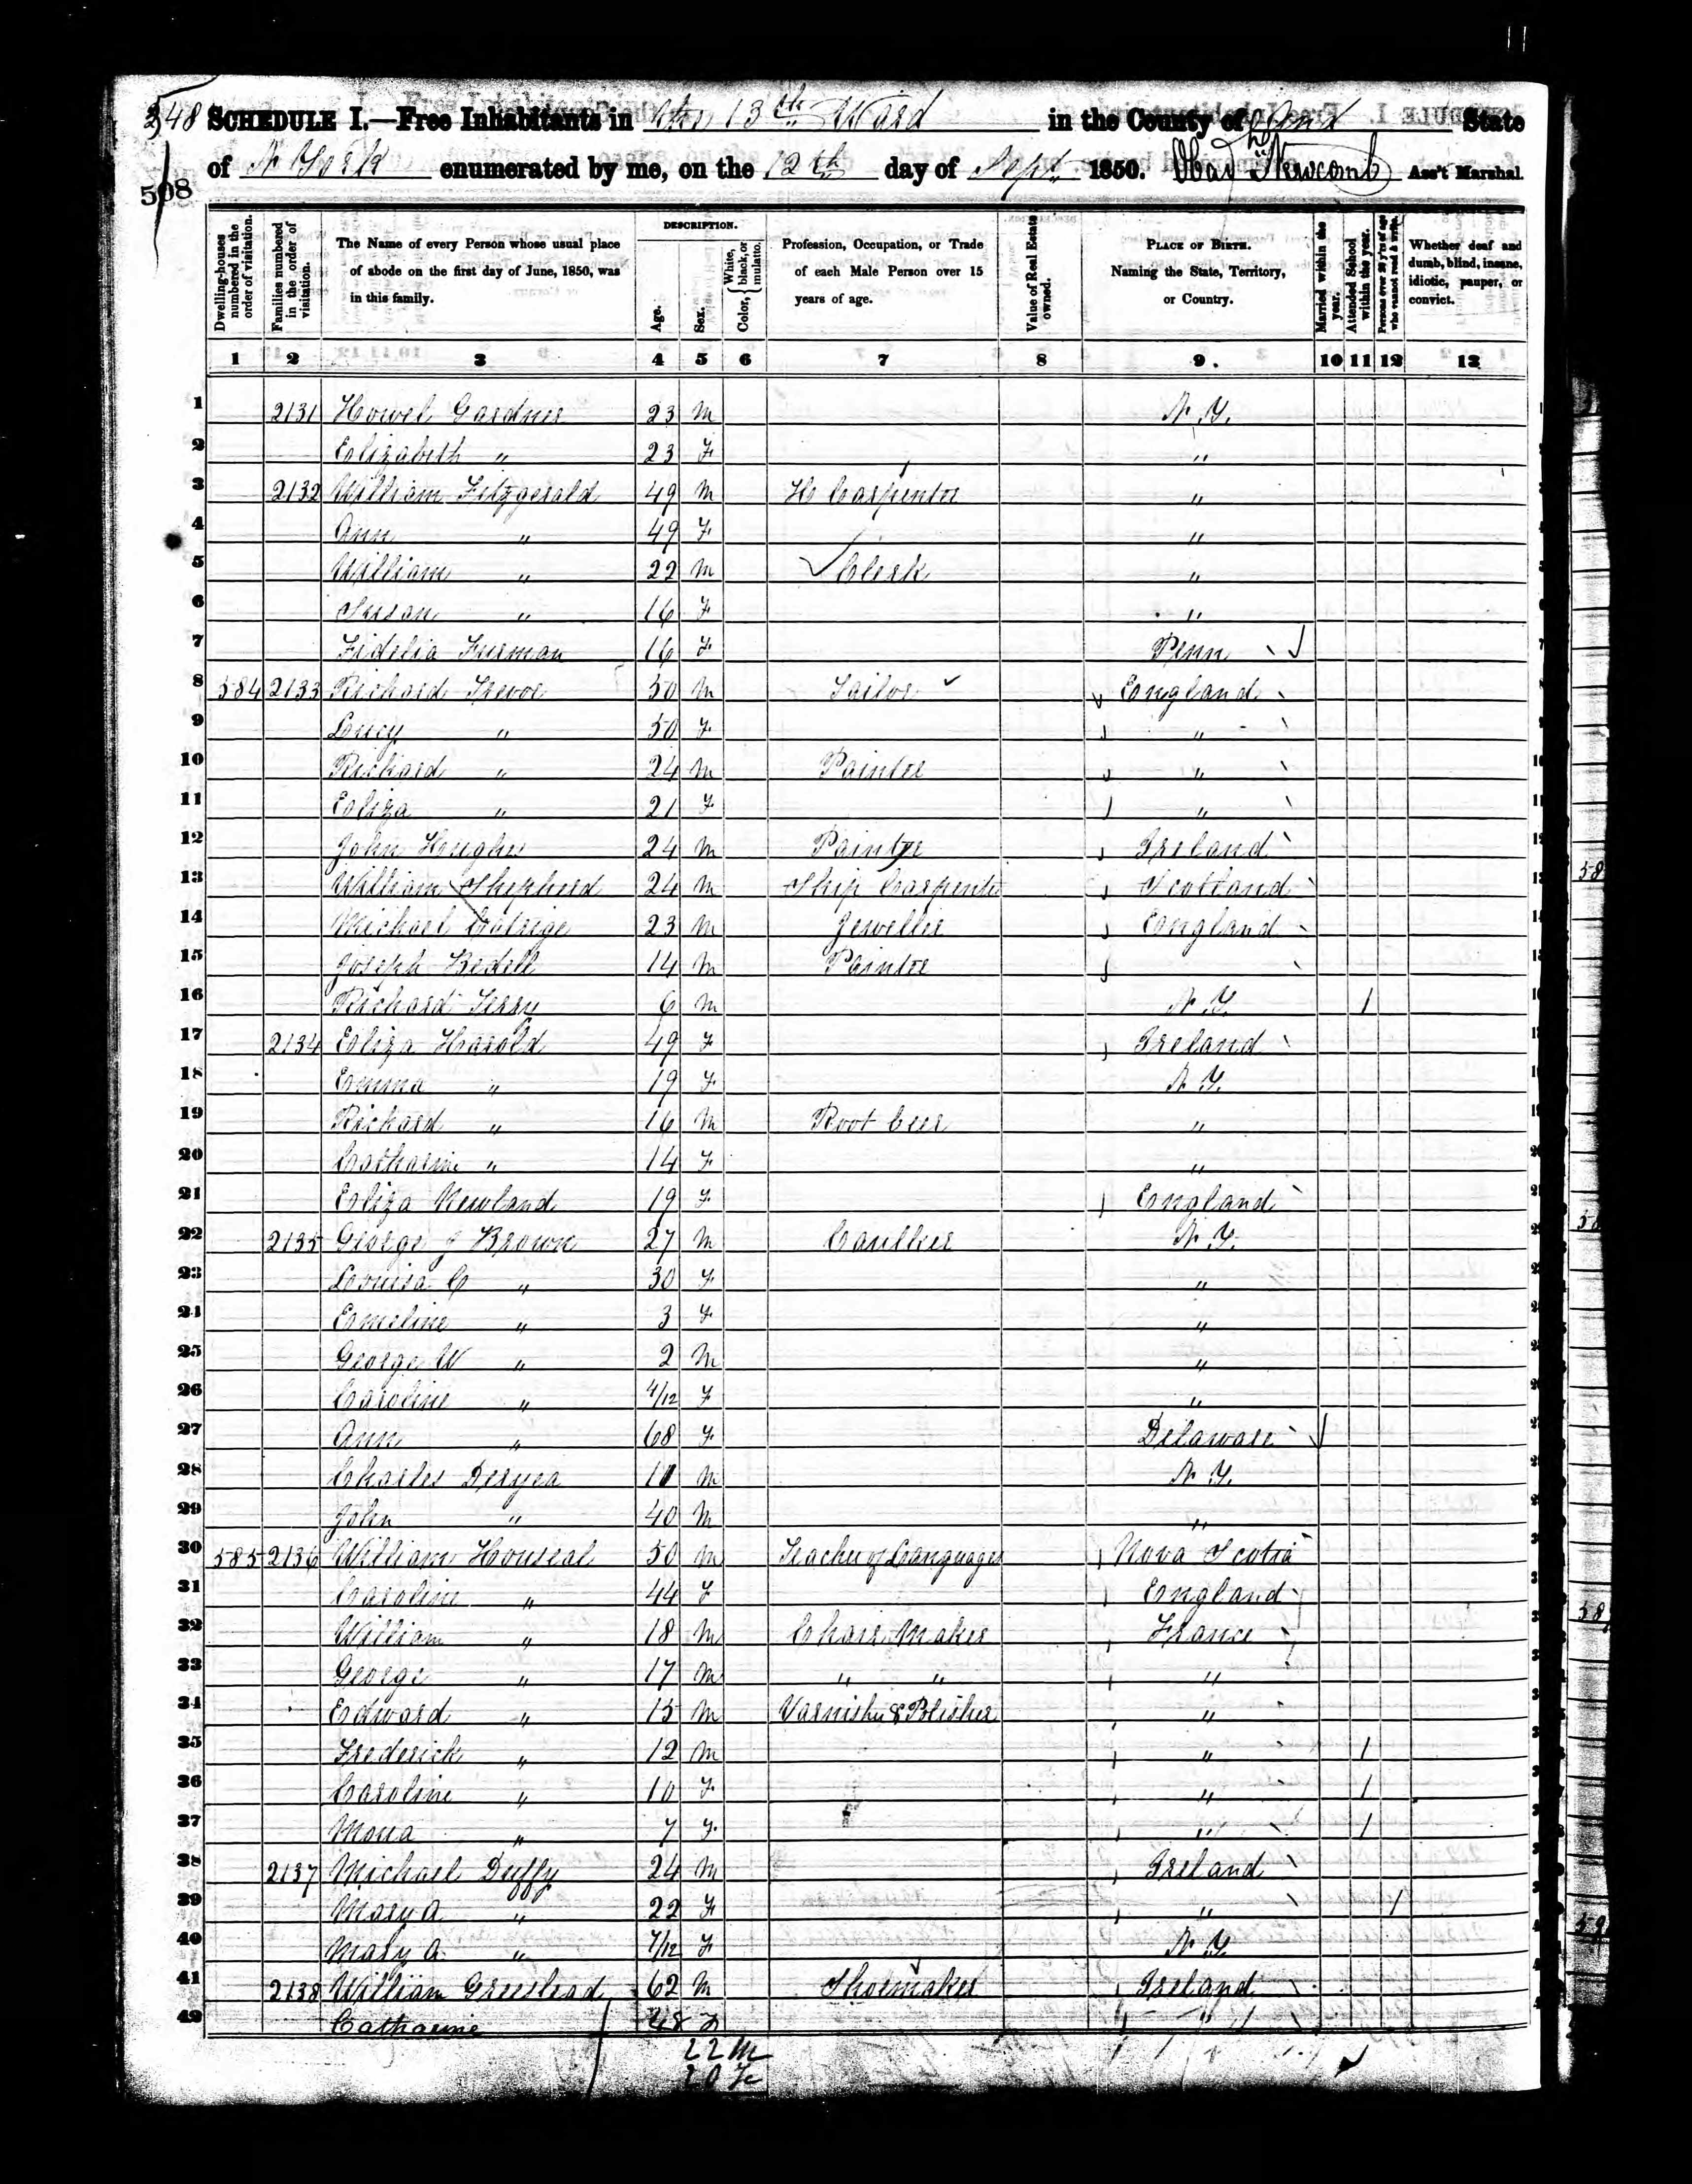 548 SCHEDULE I.—Free Inhabitants in 13th Ward in the County of State
of N York enumerated by me, on the 12th day of Sept 1850. Newcomb Ass't Marshal.
508
Dwelling-houses numbered in the order of visitation. Families numbered in the order of visitation. The Name of every Person whose usual place of abode on the first day of June, 1850, was in this family. DESCRIPTION. Age. Sex. Color, White, black, or mulatto. Profession, Occupation, or Trade of each Male Person over 15 years of age. Value of Real Estate owned. PLACE OF BIRTH. Naming the State, Territory, or Country. Married within the year. Attended School within the year. Persons over 20 y'rs of age who cannot read & write. Whether deaf and dumb, blind, insane, idiotic, pauper, or convict.
1 2 3 4 5 6 7 8 9. 10 11 12 13
1 2131 Howel Gardner 23 M N.Y.
2 Elizabeth " 23 F "
3 2132 William Fitzgerald 49 M H Carpenter "
4 Ann " 49 F "
5 William " 22 M Clerk "
6 Susan " 16 F "
7 Fidelia Furman 16 F Penn
8 584 2133 Richard Trevor 50 M Tailor England
9 Lucy " 50 F "
10 Richard " 24 M Painter "
11 Eliza " 21 F "
12 John Hughes 24 M Painter Ireland
13 William Shepherd 24 M Ship Carpenter Scotland
14 Michael 23 M Jeweller England
15 Joseph Bedell 14 M Painter
16 Richard Terry 6 M N.Y. 1
17 2134 Eliza Harold 49 F Ireland
18 Emma " 19 F N.Y.
19 Richard " 16 M Root beer "
20 Catharine " 14 F "
21 Eliza Newland 19 F England
22 2135 George J Brown 27 M Caulker N.Y.
23 Louisa C " 30 F "
24 Emeline " 3 F "
25 George W " 2 M "
26 Caroline " 4/12 F "
27 Ann " 68 F Delaware
28 Charles Deryea 10 M N.Y.
29 John " 40 M "
30 585 2136 William Houseal 50 M Teacher of Languages Nova Scotia
31 Caroline " 44 F England
32 William " 18 M Chair Maker France
33 George " 17 M " " "
34 Edward " 15 M Varnisher & Polisher "
35 Frederick " 12 M " 1
36 Caroline " 10 F " 1
37 Mona " 7 F " 1
38 2137 Michael Duffy 24 M Ireland
39 Mary A " 22 F " 1
40 Mary A " 7/12 F N.Y.
41 2138 William Greeslead 62 M Shoemaker Ireland
42 Catharine 48 F "
22 M
20 F